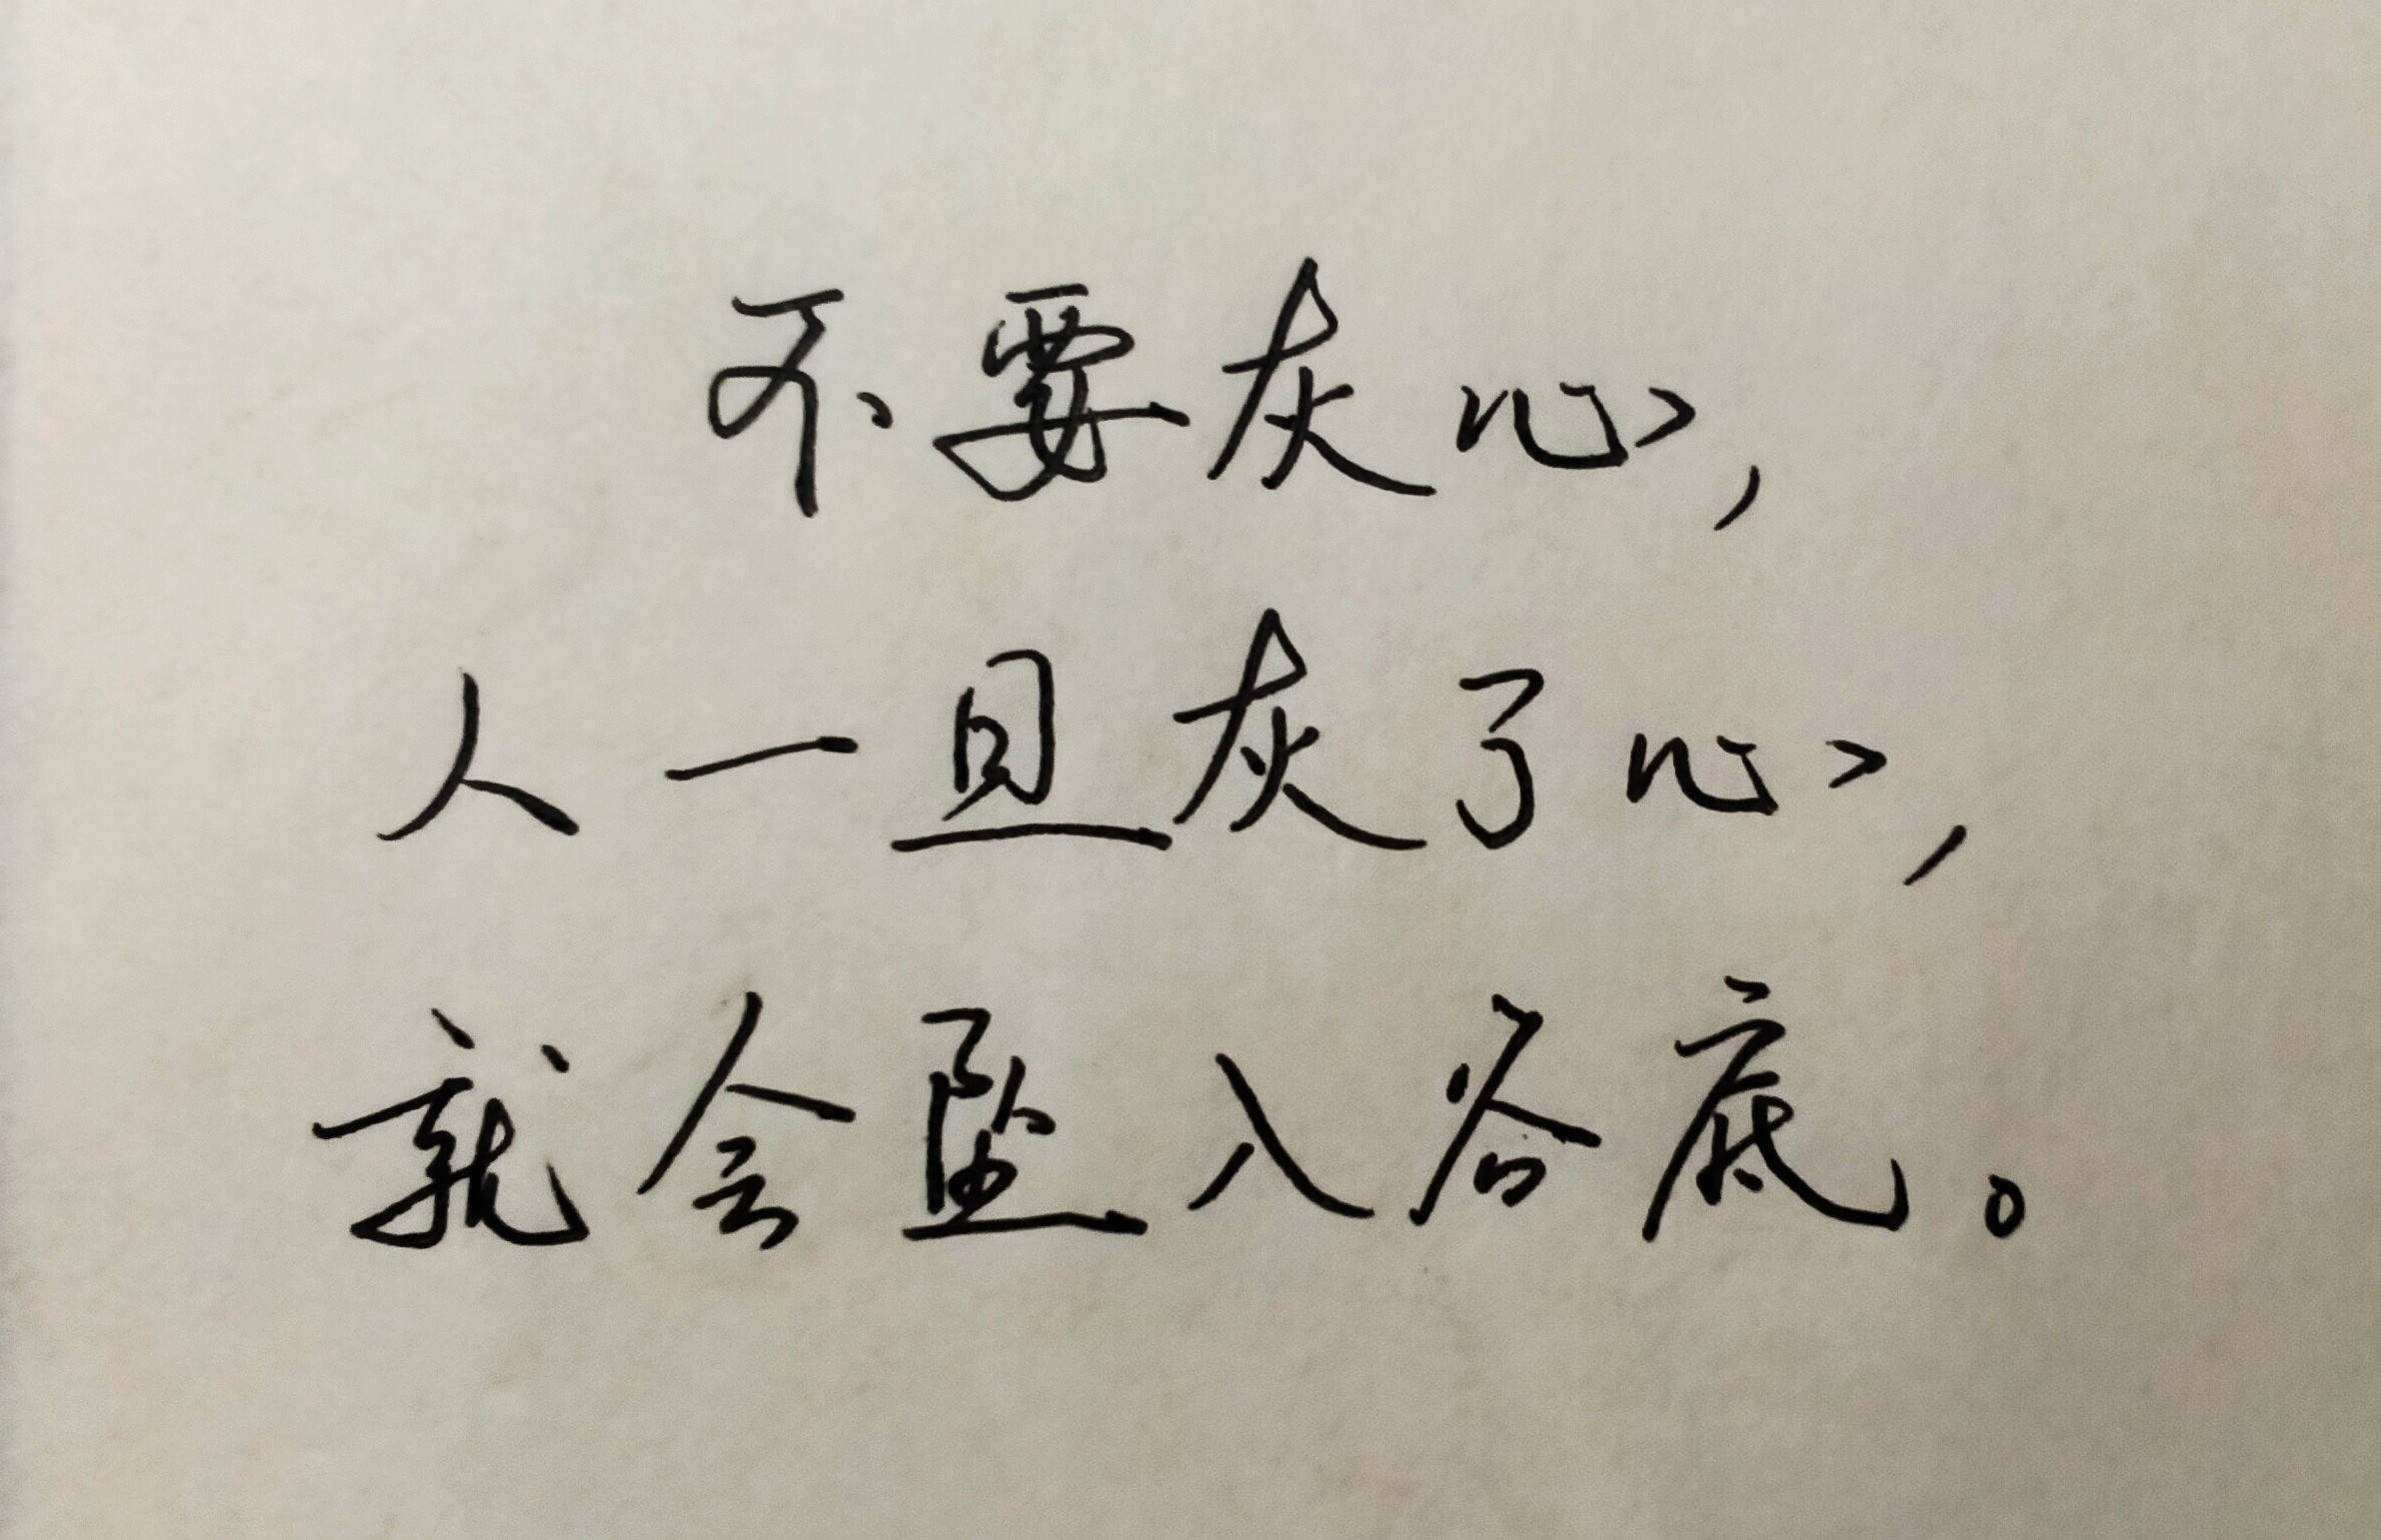 不要灰心,
人一旦灰了心,
就会坠入谷底。